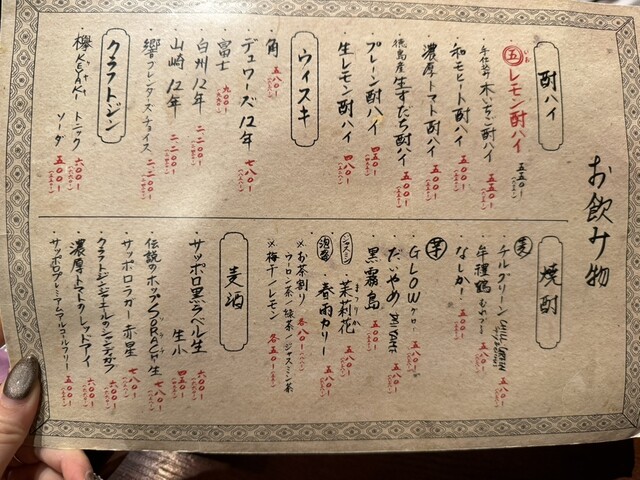 お飲み物
酎ハイ
五 レモン酎ハイ 五五〇-
手仕込み 木いちご酎ハイ 五五〇-
和モヒート酎ハイ 五五〇-
濃厚トマト酎ハイ 五〇〇-
徳島産 生すだち酎ハイ 五〇〇-
プレーン酎ハイ 四五〇-
生レモン酎ハイ 四八〇-
ウィスキー
・角 五八〇-
・デュワーズ12年 七八〇-
・富士 九〇〇-
・白州12年 二、二〇〇-
・山崎12年 二、二〇〇-
・響ブレンダーズチョイス 二、二〇〇-
クラフトジン
・欅 KEYAKI トニック 六〇〇-
ソーダ 五〇〇-
焼酎
麦
・チルグリーン CHILL GREEN 五八〇-
・牟禮鶴 五八〇-
・なしか- 五〇〇-
芋
・GLOW 五八〇-
・だいやめ DAIYAME 五八〇-
・黒霧島 五〇〇-
ジャスミン
・茉莉花 まつりか 五八〇-
泡盛
・春雨カリー 五八〇-
※お茶割り 各八〇-
ウーロン茶/緑茶/ジャスミン茶
※梅干/レモン 各五〇-
麦酒
・サッポロ黒ラベル生 六〇〇-
生小 四五〇-
・伝説のホップSORACHI生 七八〇-
・サッポロラガー 赤星 七八〇-
・クラフトジンジャーエールのシャンディガフ 六〇〇-
・濃厚トマトのレッドアイ 六〇〇-
・サッポロプレミアムアルコールフリー 五八〇-